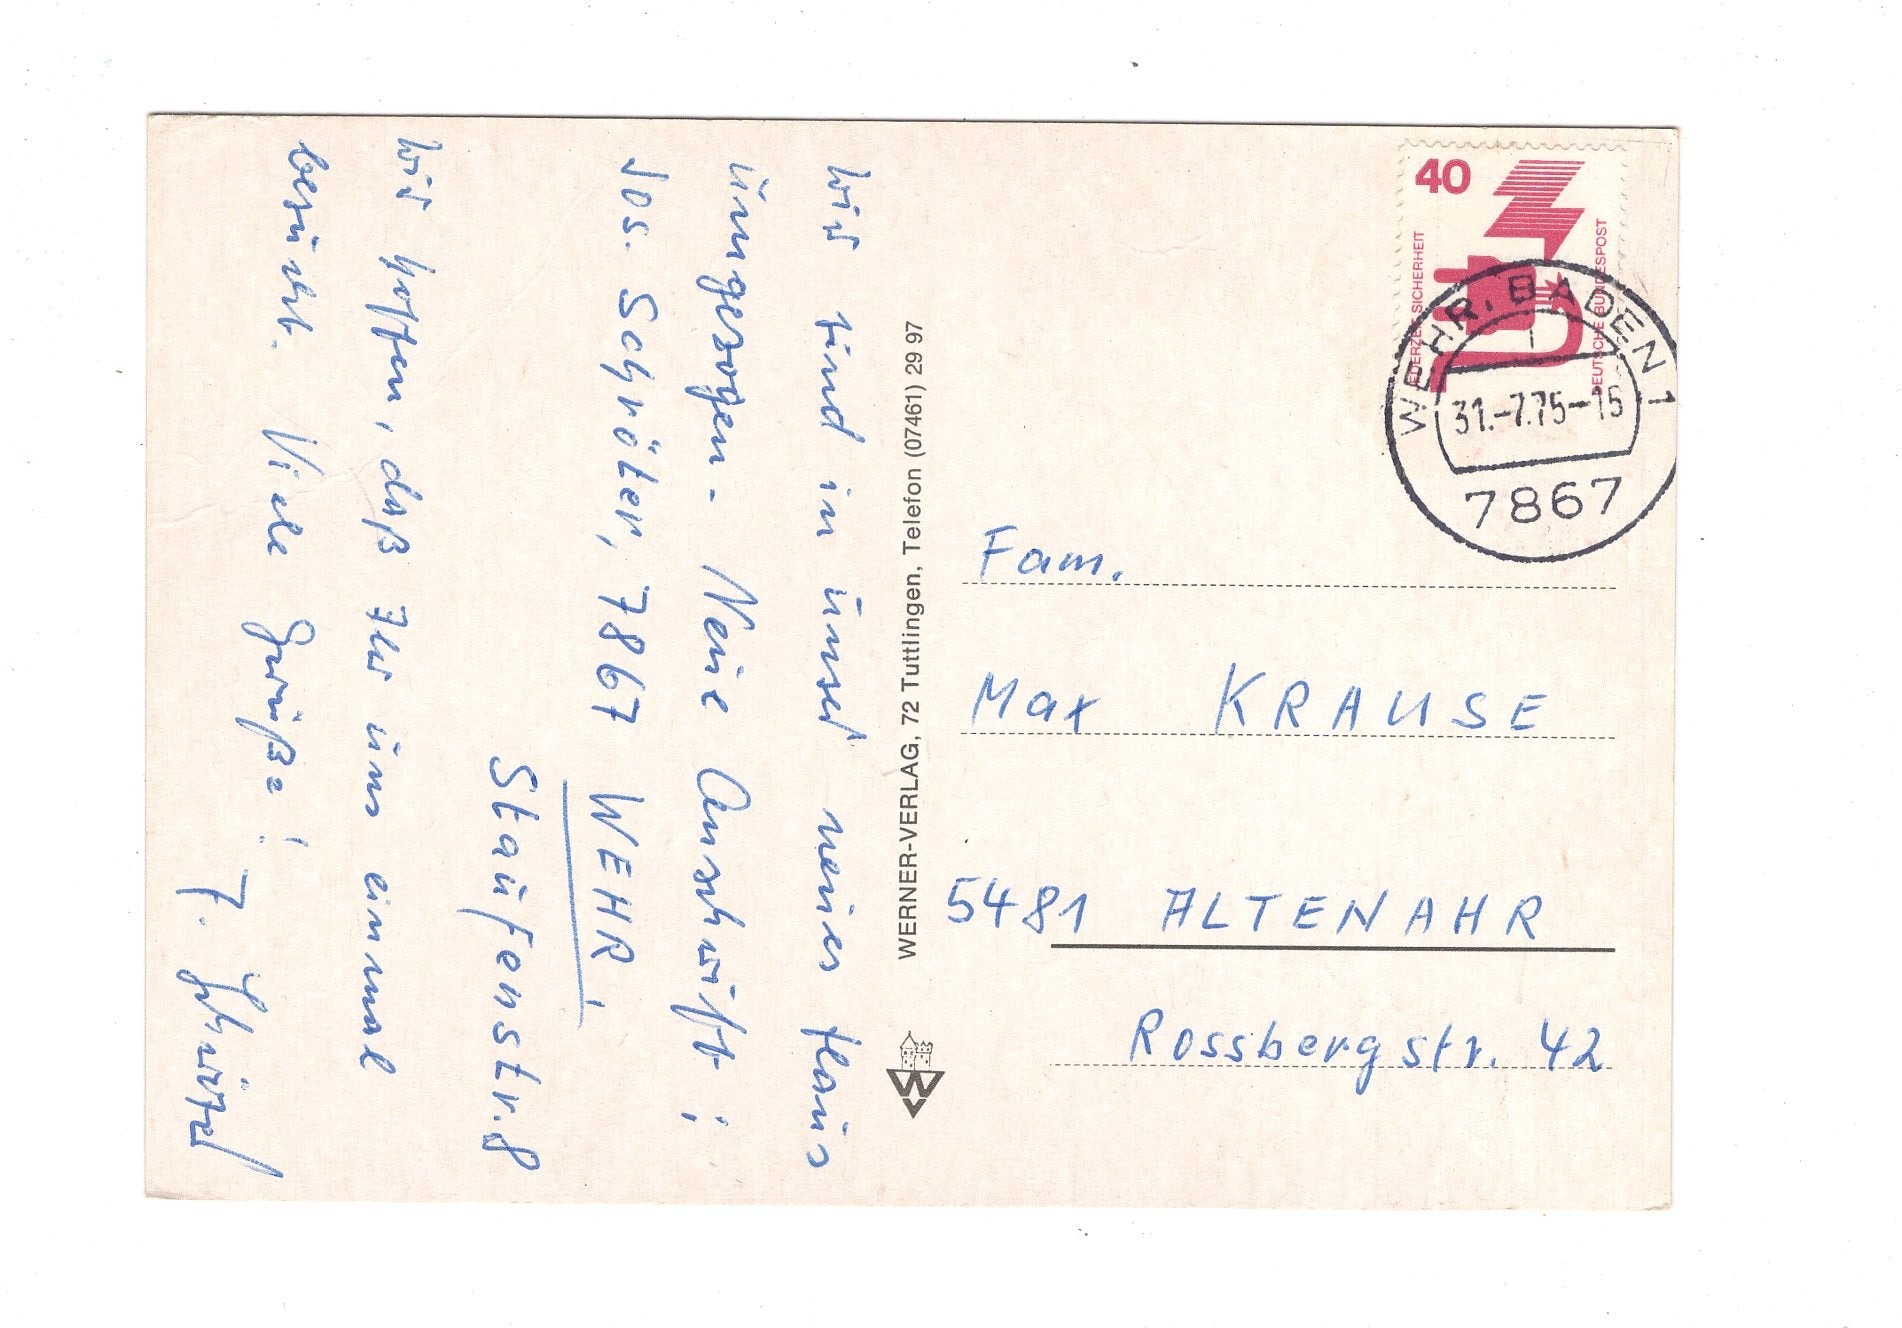 Wir sind in unser neues Haus
umgezogen. Neue Anschrift:
Jos. Schröter, 7867 WEHR,
Staufenstr. 8
Wir hoffen, daß Ihr uns einmal
besucht. Viele Grüße!
WERNER-VERLAG, 72 Tuttlingen, Telefon (07461) 29 97
40
JEDERZEIT SICHERHEIT
DEUTSCHE BUNDESPOST
WEHR, BADEN 1
31.-7.75-15
7867
Fam.
Max KRAUSE
5481 ALTENAHR
Rossbergstr. 42